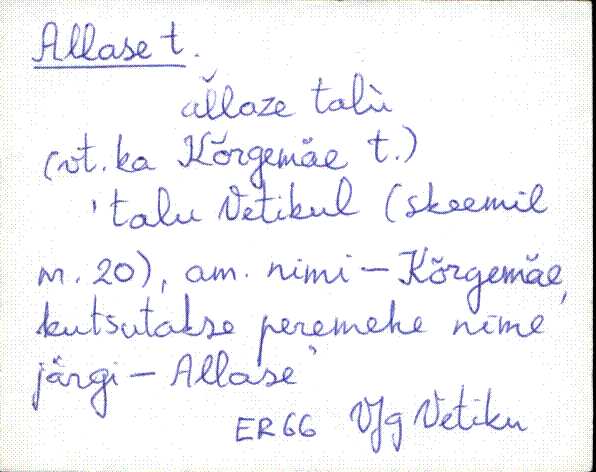 Allase t.
ăllaze talù
(vt. ka Kõrgemäe t.)
'talu Vetikul (skeemil
nr. 20), am. nimi – Kõrgemäe,
kutsutakse peremehe nime
järgi – Allase'
ER66 VJg Vetiku